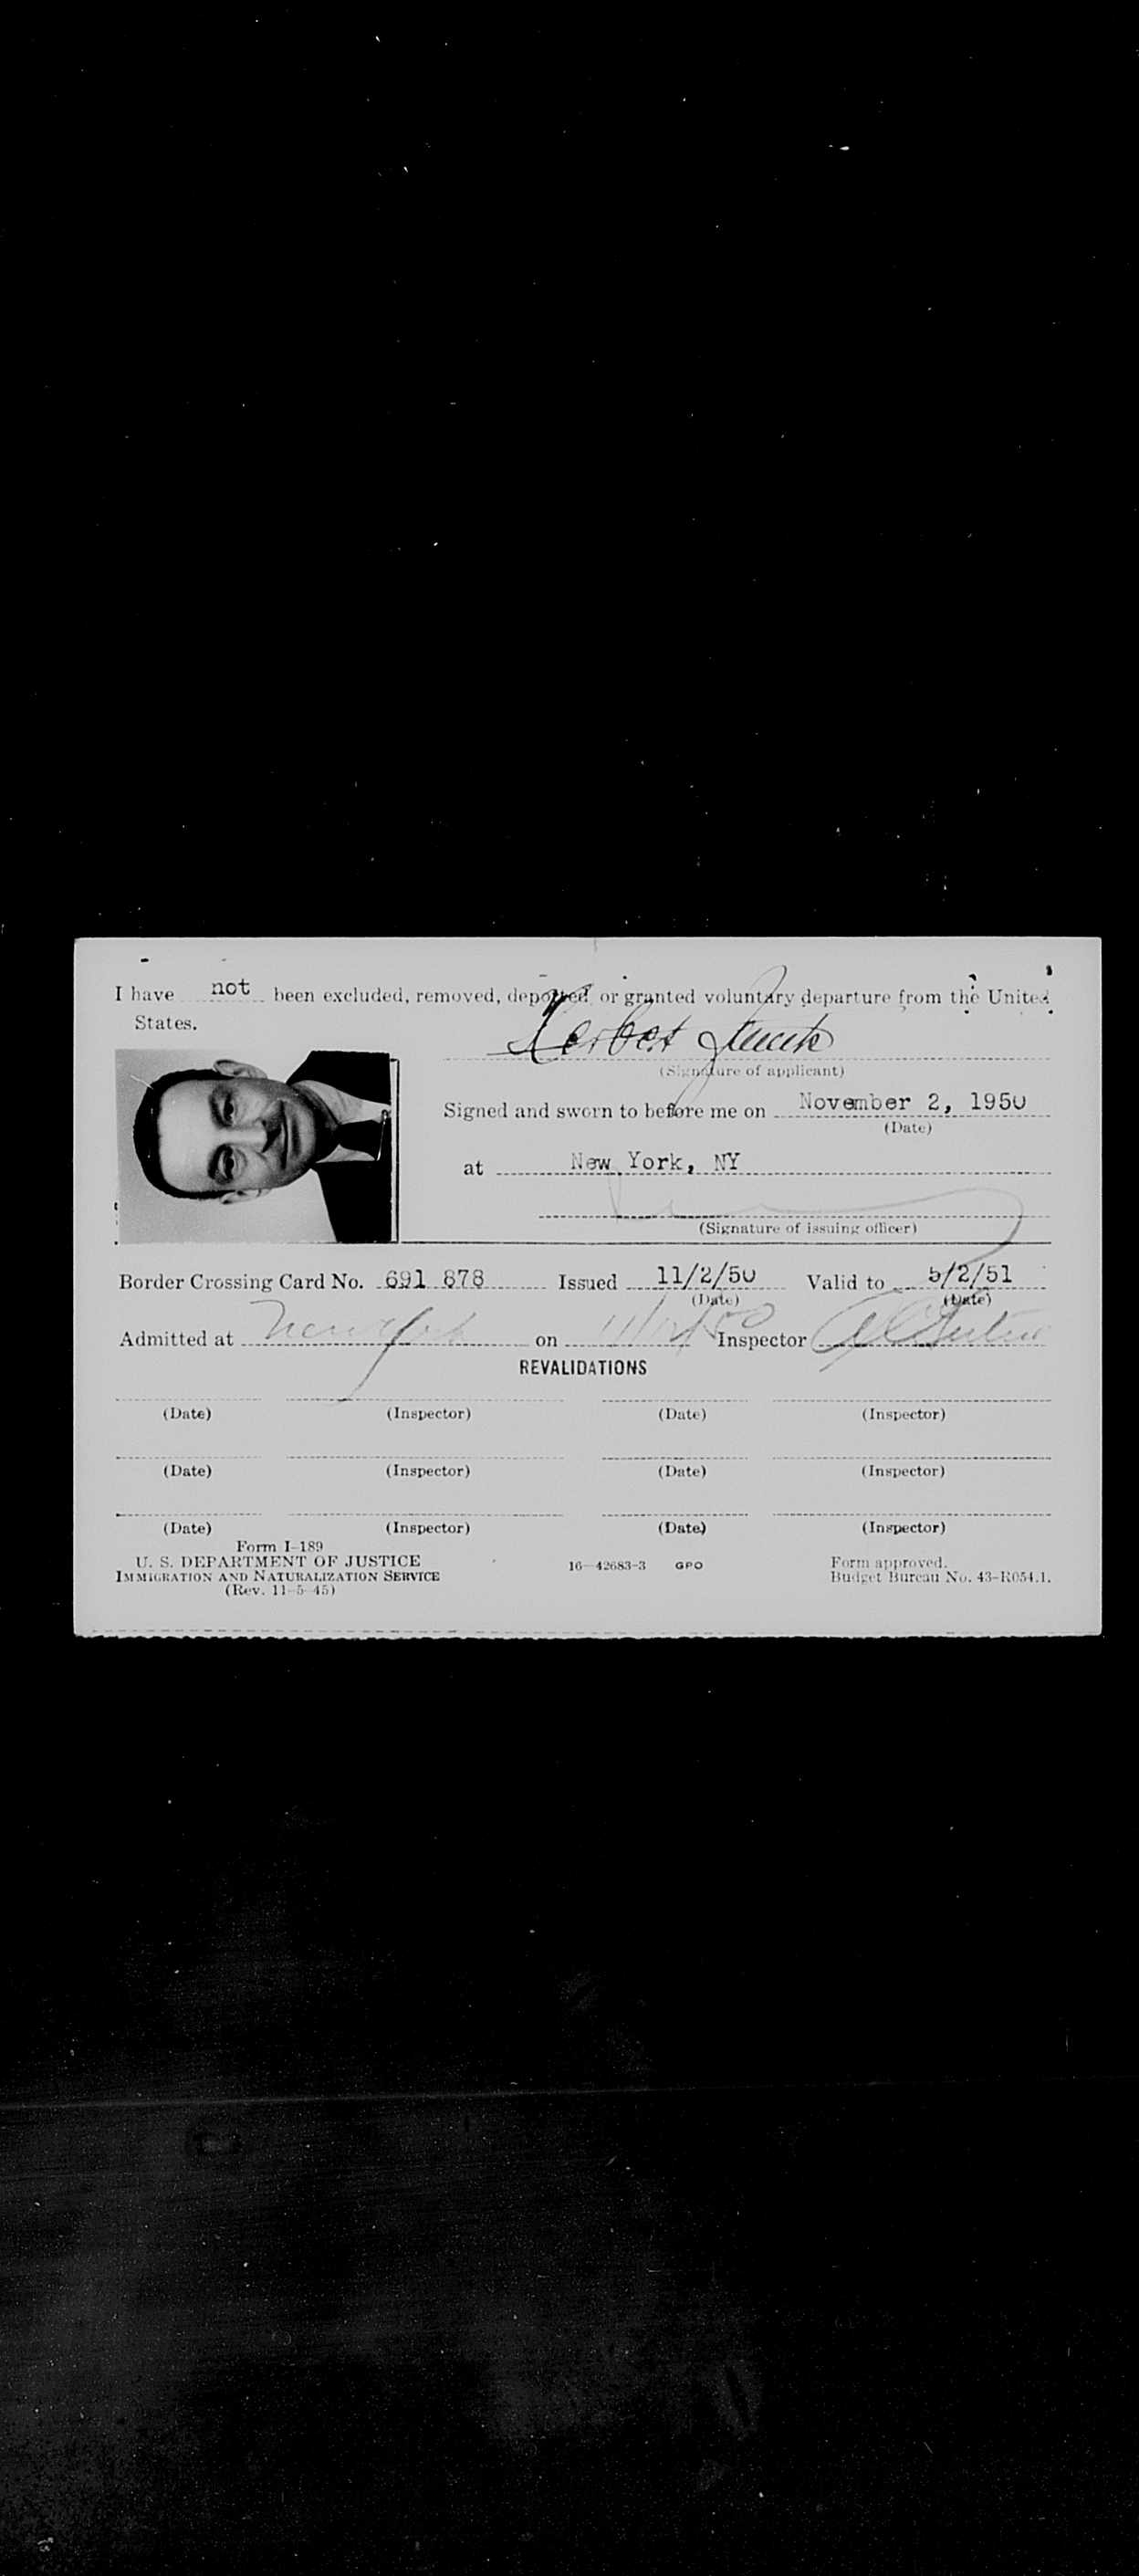 I have not been excluded, removed, deported, or granted voluntary departure from the United
States.
Herbert
(Signature of applicant)
Signed and sworn to before me on November 2, 1950
(Date)
at New York, NY
(Signature of issuing officer)
Border Crossing Card No. 691 878 Issued 11/2/50 Valid to 5/2/51
(Date) (Date)
Admitted at New York on Inspector
REVALIDATIONS
(Date) (Inspector) (Date) (Inspector)
(Date) (Inspector) (Date) (Inspector)
(Date) (Inspector) (Date) (Inspector)
Form I-189
U. S. DEPARTMENT OF JUSTICE
IMMIGRATION AND NATURALIZATION SERVICE
(Rev. 11-5-45)
16—42683-3 GPO
Form approved.
Budget Bureau No. 43-R054.1.